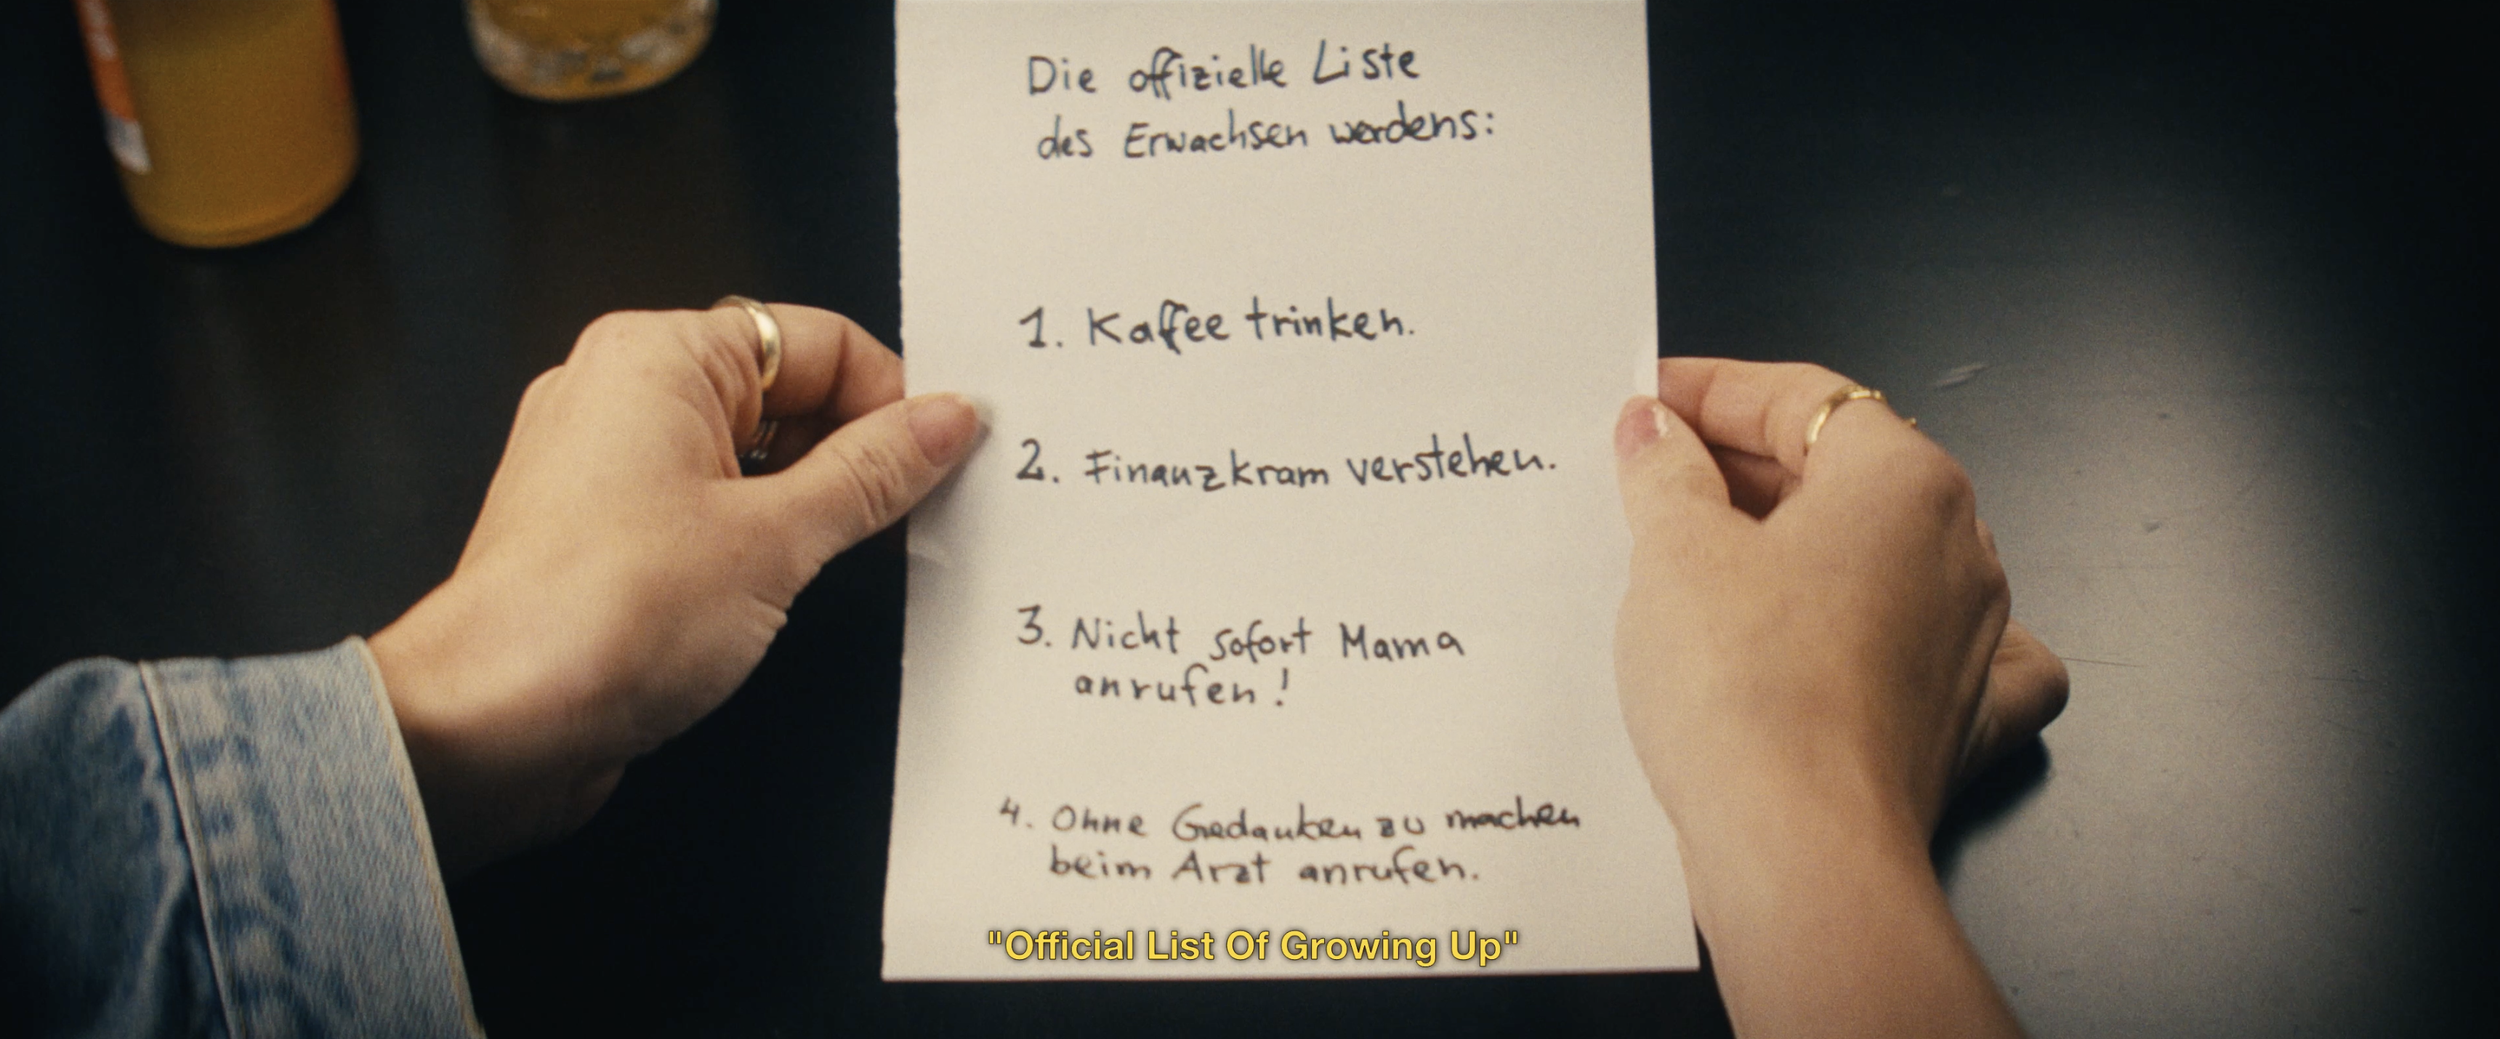 Die offizielle Liste
des Erwachsen werdens:
1. Kaffee trinken.
2. Finanzkram verstehen.
3. Nicht sofort Mama
anrufen!
4. Ohne Gedanken zu machen
beim Arzt anrufen.
"Official List Of Growing Up"